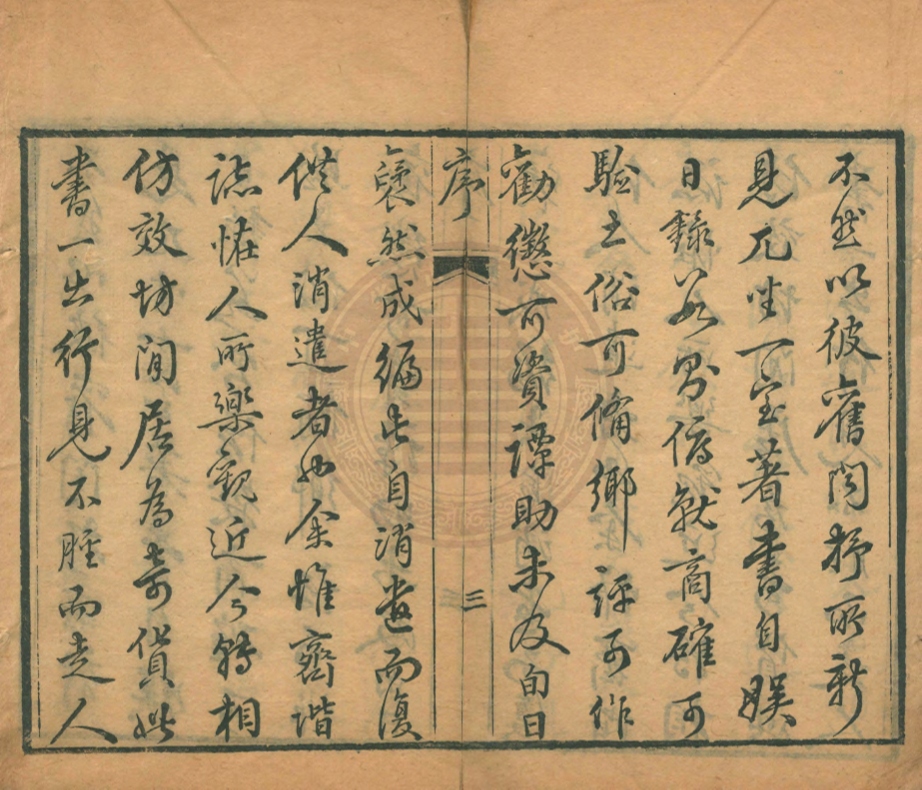 不然以彼舊聞抒所新
見兀坐一室著書自娛
日錄數則俯就商確可
驗土俗可備鄉評可作
勸懲可資譚助未及旬日
序
三
褎然成編此自消遣而復
供人消遣者也余惟齊諧
誌怪人所樂觀近今轉相
仿效坊間居為奇貨此
書一出行見不脛而走人